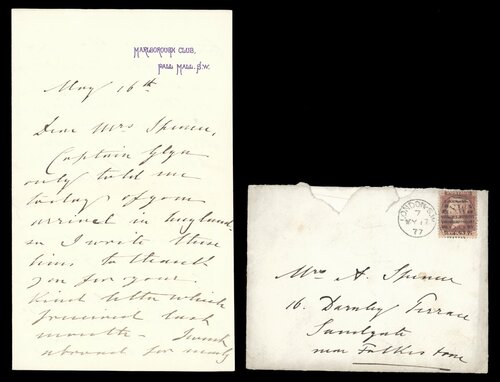 MARLBOROUGH CLUB,
PALL MALL. S.W.
May 16th
Dear Mrs Spence,
Captain Glyn
only told me
today of your
arrival in England
so I write these
lines to thank
you for your
kind letter which
I received last
month. I went
abroad for nearly
LONDON S.W.
7
MY 17
77
SW
Mrs A. Spence
16. Darnley Terrace
Sandgate
near Folkestone